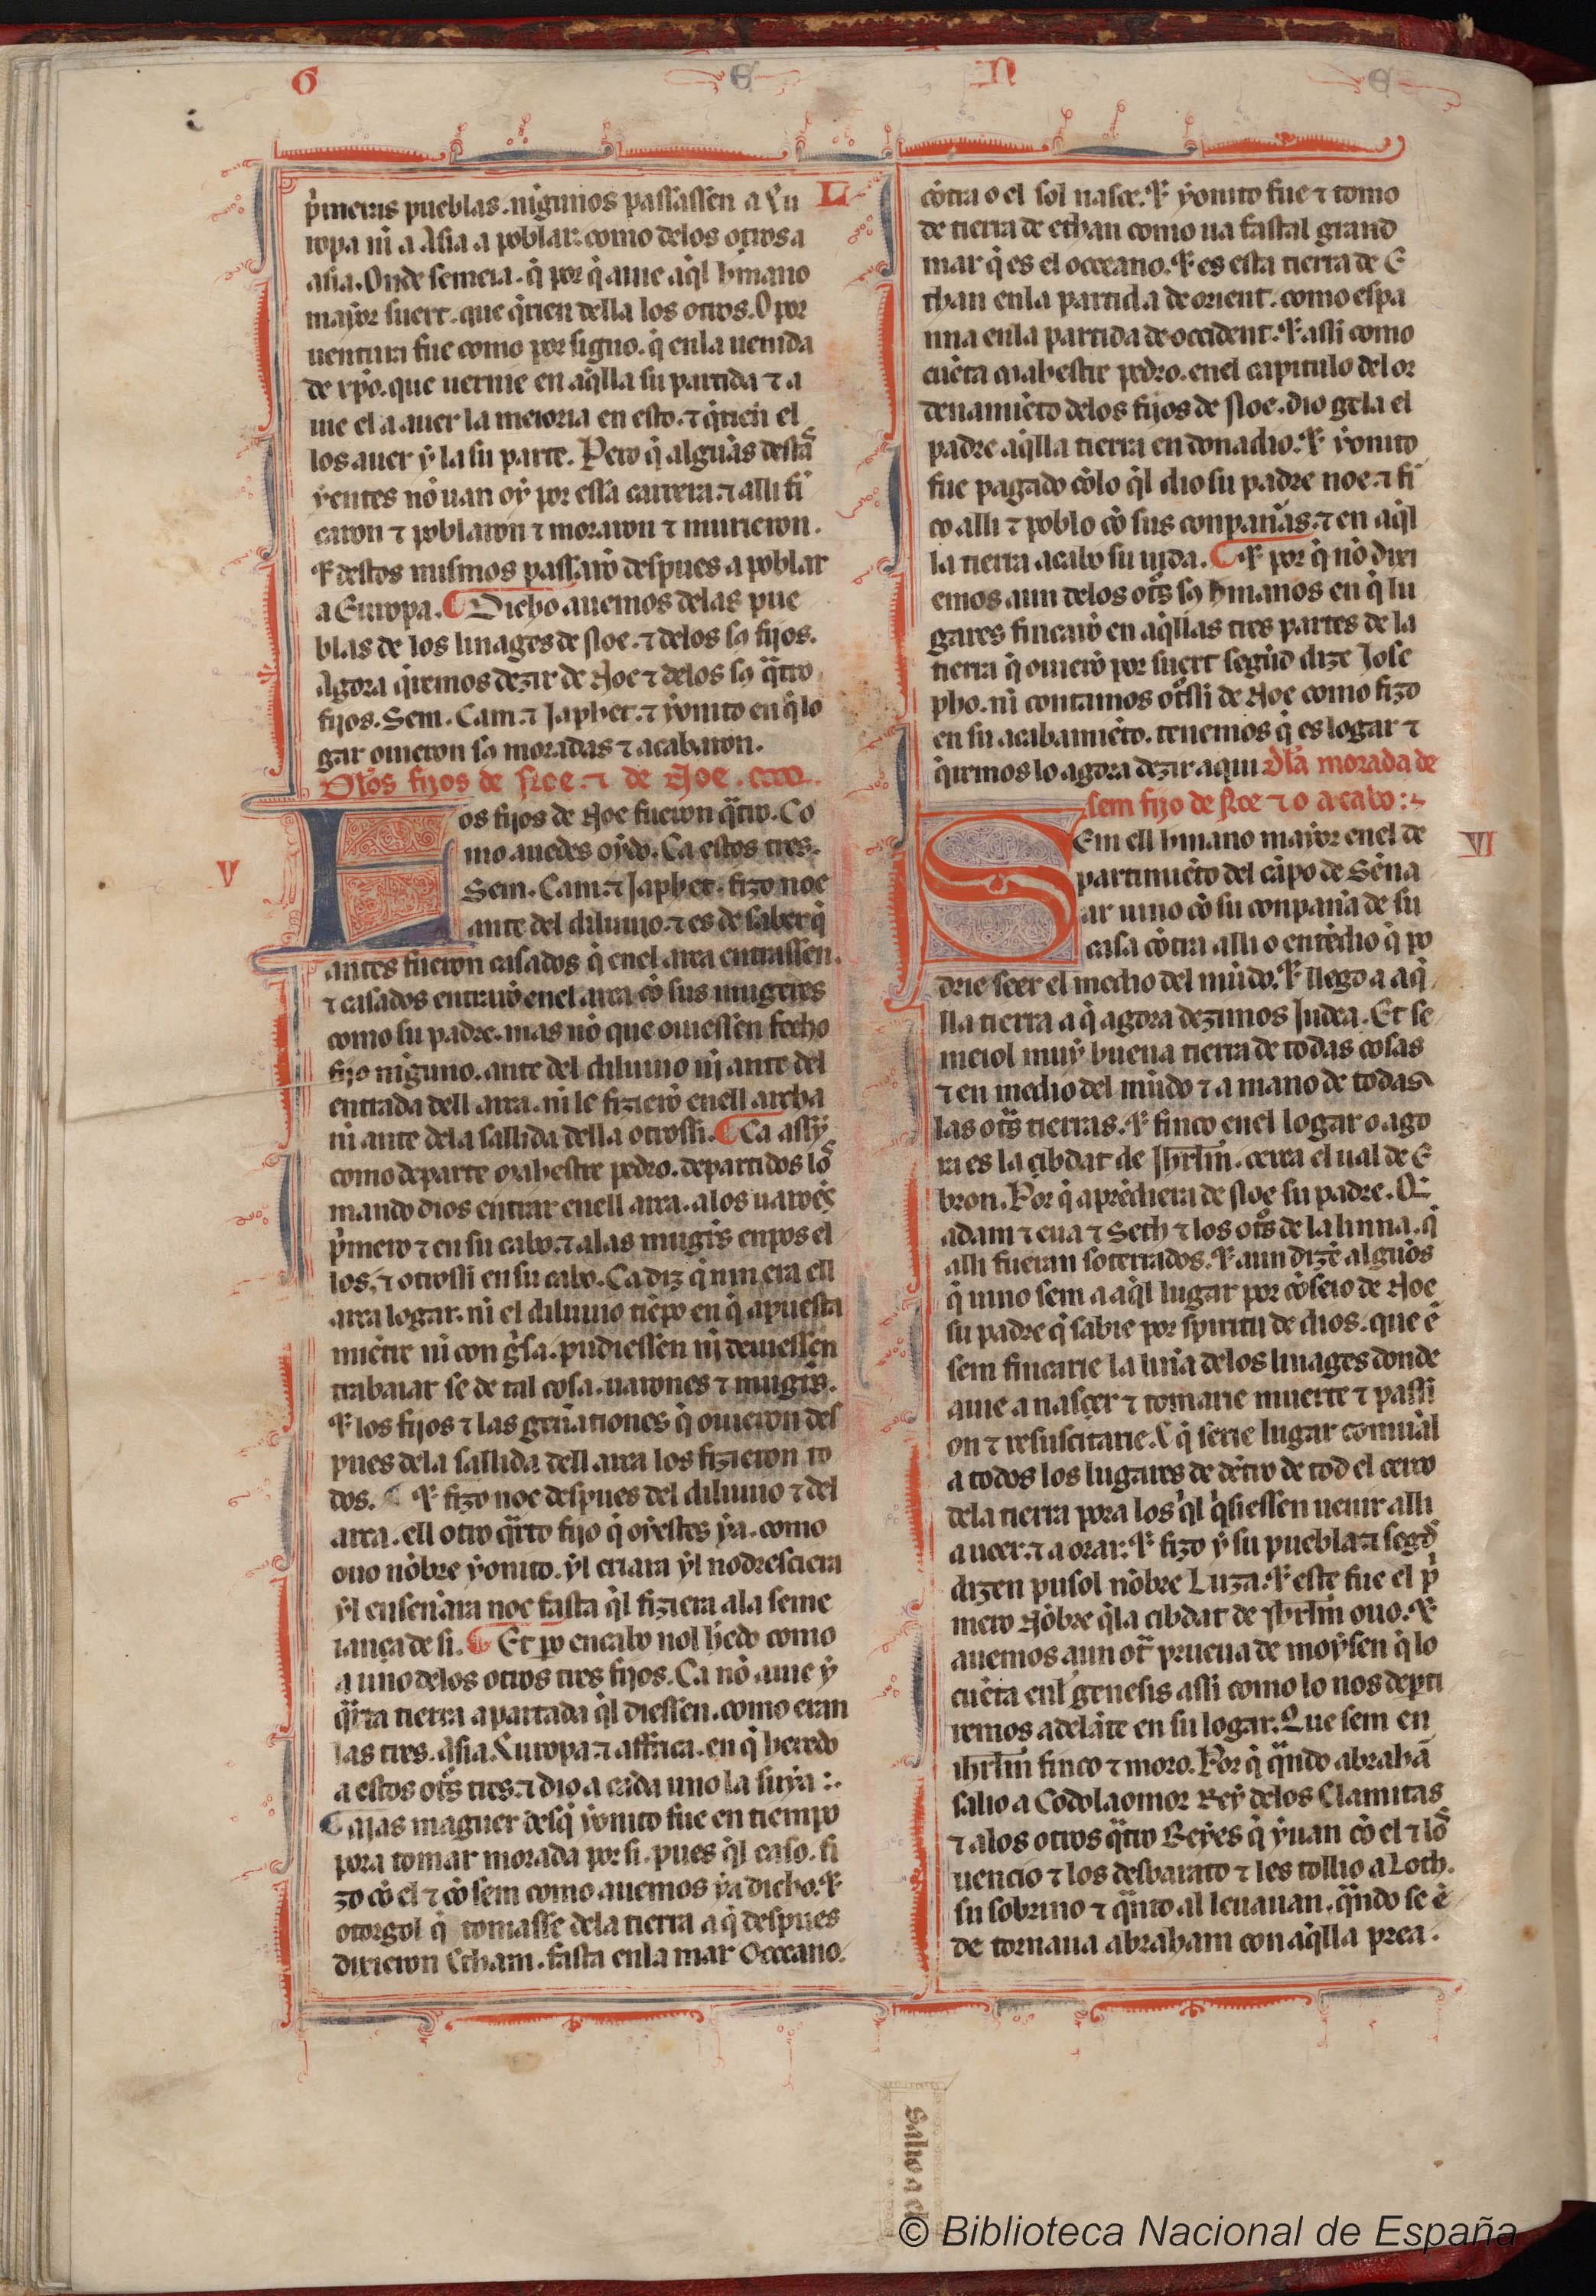 G E N E
p̃meras pueblas. nigunos passassen a Eu
ropa ni a Asia a poblar: como delos otros a
asia. Onde semeia. q̃ por q̃ auie aq̃l h̃mano
mayor suert. que q̃rien della los otros. O por
uentura fue como por signo. q̃ enla uenida
de xp̃o. que uernie en aq̃lla su partida ⁊ a
uie el a auer la meioria en esto. ⁊ q̃rien el
los auer ẏ la su parte. Pero q̃ alguãs destas
ẏentes nõ uan oẏ por essa carrera. ⁊ alli fi
caron ⁊ poblaron ⁊ moraron ⁊ murieron.
⁊ destos mismos passarõ despues a poblar
a Europa. ¶ Dicho auemos delas pue
blas de los linages de Noe. ⁊ delos sos fijos.
Agora q̃remos dezir de Noe ⁊ delos sos q̃tro
fijos. Sem. Cam. ⁊ Japhet. ⁊ ẏonito en q̃ lo
gar ouieron sos moradas ⁊ acabaron.
Dlos fijos de Noe. ⁊ de Noe.
V
Los fijos de Noe fueron q̃tro. Co
mo auedes oẏdo. Ca estos tres.
Sem. Cam. ⁊ Japhet. fizo noe
ante del diluuio. ⁊ es de saber q̃
antes fueron casados q̃ enel arca entrassen.
⁊ casados entrarõ enel arca cõ sus mugieres
como su padre. mas nõ que ouiessen fecho
fijo niguno. ante del diluuio ni ante del
entrada dell arca. ni le fizierõ enell archa
ni ante dela sallida della otrossi. ¶ Ca assẏ
como departe Mahestre pedro. departidos los
mando dios entrar enell arca. a los uarões
p̃mero ⁊ en su cabo. ⁊ a las mugr̃s enpos el
los, ⁊ otrossi en su cabo. Ca diz q̃ nin era ell
arca logar. ni el diluuio tiẽpo en q̃ apuesta
miẽtre ni con gr̃sa. pudiessen ni deuiessen
trabaiar se de tal cosa. uarones ⁊ mugr̃s.
⁊ los fijos ⁊ las geñationes q̃ ouieron des
pues dela sallida dell arca los fizieron to
dos. ¶ ⁊ fizo noe despues del diluuio ⁊ del
arca. ell otro q̃rto fijo q̃ oẏestes ẏa. como
ouo nõbre ẏonito. ẏl criara ẏl nodresciera
ẏl ensenara noe fasta q̃l fiziera ala seme
iança de si. ¶ Et p̃o en cabo nol h̃edo como
a uno delos otros tres fijos. Ca nõ auie ẏ
q̃rta tierra apartada q̃l diessen. como eran
las tres. Asia. Europa. ⁊ affrica. en q̃ heredo
a estos ot̃s tres. ⁊ dio a cada uno la suẏa :.
¶ Mas maguer desq̃ ẏonito fue en tiempo
pora tomar morada por si. pues q̃l caso. fi
zo cõ el ⁊ cõ sem como auemos ẏa dicho. ⁊
otorgol q̃ tomasse dela tierra a q̃ despues
dixieron Ethan. fasta enla mar Occeano.
L
cõtra o el sol nasce. ⁊ ẏonito fue ⁊ tomo
de tierra de ethan como ua fastal grand
mar q̃ es el occeano. ⁊ es esta tierra de E
than enla partida de orient. como espa
nna enla partida de occident. ⁊ assi como
cuẽta Mahestre pedro. enel capitulo del or
denamiẽto delos fijos de Noe. dio gela el
padre aq̃lla tierra en donadio. ⁊ ẏonito
fue pagado cõlo q̃l dio su padre noe. ⁊ fi
co alli ⁊ poblo cõ sus conpanãs. ⁊ en aq̃l
la tierra acabo su uida. ¶ ⁊ por q̃ nõ dixi
emos aun delos ot̃s sos h̃manos en q̃ lu
gares fincarõ en aq̃llas tres partes de la
tierra q̃ ouierõ por suert segũd dize Jose
pho. ni contamos ot̃ssi de Noe como fizo
en su acabamiẽto. tenemos q̃ es logar ⁊
q̃remos lo agora dezir aqui Dla morada de
sem fijo de Noe ⁊ o acabo :~
VI
Sem ell h̃mano maẏor enel de
partimiẽto del cãpo de Sẽna
ar uino cõ su conpanã de su
casa cõtra alli o entẽdio q̃ po
drie seer el medio del mũdo. ⁊ llego a aq̃
lla tierra a q̃ agora dezimos Judea. Et se
meiol muẏ buena tierra de todas cosas
⁊ en medio del mũdo ⁊ a mano de todas
las ot̃s tierras. ⁊ finco enel logar o ago
ra es la cibdat de Jhrlm̃. cerca el ual de E
bron. Por q̃ aprẽdiera de Noe su padre. Q̃
adam ⁊ eua ⁊ Seth ⁊ los ot̃s de la linna. q̃
alli fueran soterrados. ⁊ aun dizẽ alguõs
q̃ uino sem a aq̃l lugar por cõseio de Noe
su padre q̃ sabie por spiritu de dios. que ẽ
sem fincarie la linãa delos linages donde
auie a nasçer ⁊ tomarie muerte ⁊ passi
on ⁊ resuscitarie. E q̃ serie lugar comũal
a todos los lugares de dẽtro de tod el cerco
dela tierra pora los q̃l q̃siessen uenir alli
a ueer. ⁊ a orar. ⁊ fizo ẏ su puebla. ⁊ segũd
dizen pusol nõbre Luza. ⁊ este fue el p̃
mero Nõbre q̃la cibdat de Jhrlm̃ ouo. ⁊
auemos aun ot̃ prueua de moẏsen q̃ lo
cuẽta enl genesis assi como lo nos dep̃ti
remos adelãte en su logar. Que sem en
ihrlm̃ finco ⁊ moro. Por q̃ q̃ndo abrahã
salio a Codolaomor Reẏ delos Elamitas
⁊ alos otros q̃tro Reẏes q̃ ẏuan cõ el ⁊ los
uencio ⁊ los desbarato ⁊ les tollio a Loth.
su sobrino ⁊ q̃nto al leuauan. q̃ndo se ẽ
de tornaua abraham con aq̃lla prea.
Salio a
© Biblioteca Nacional de España